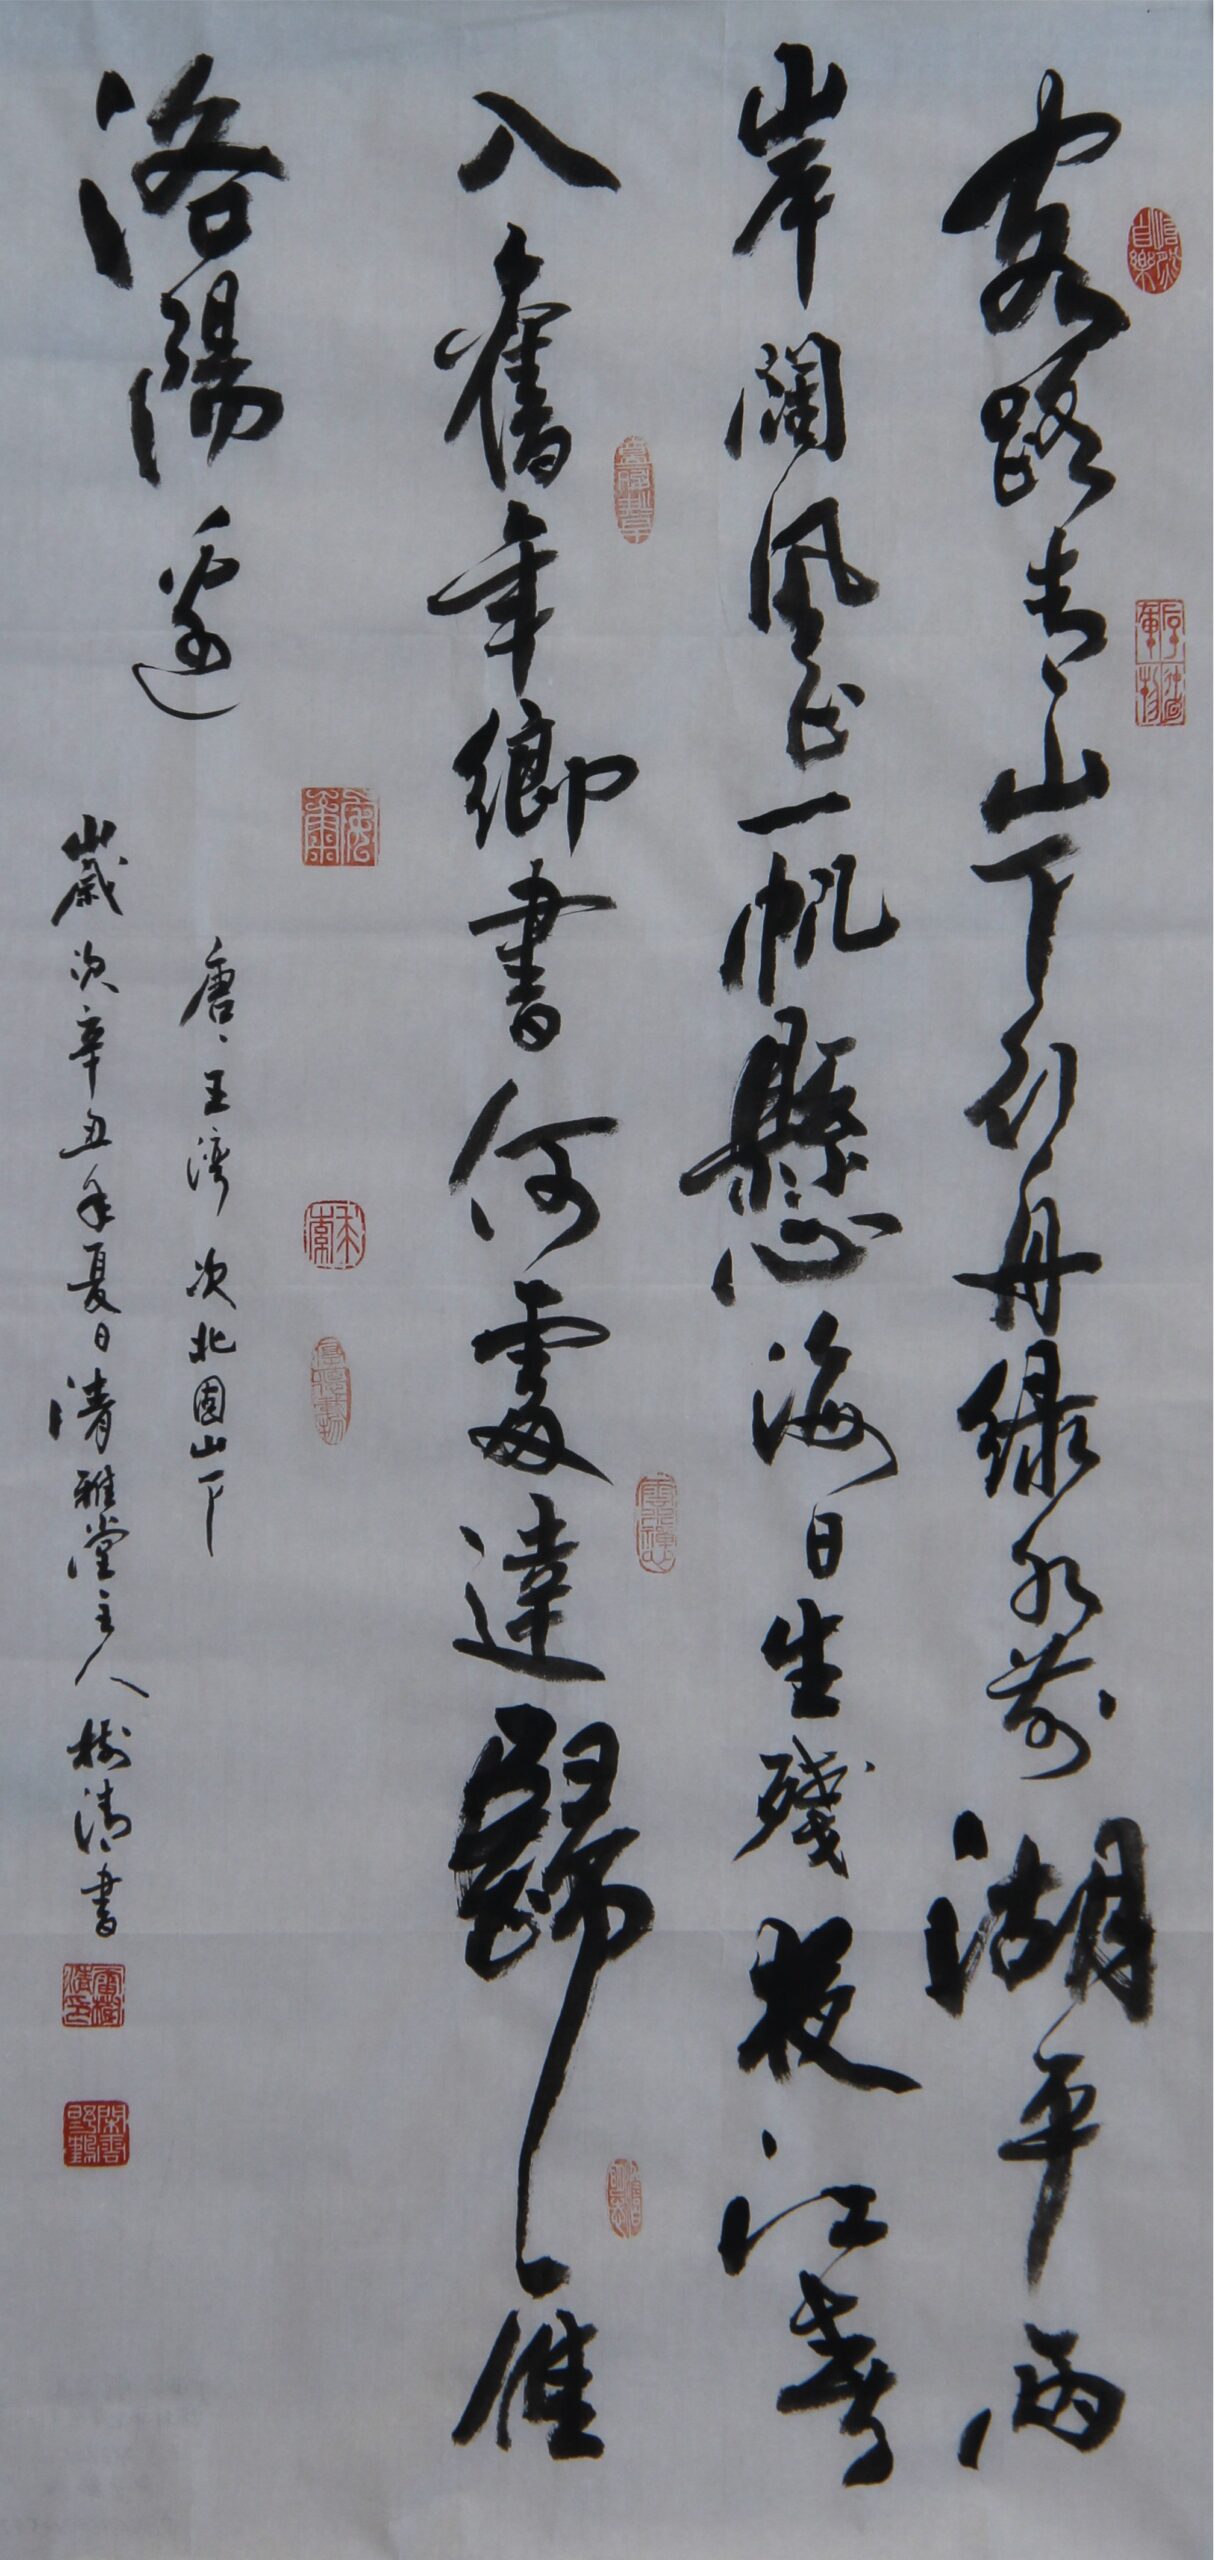 客路青山下行舟綠水前湖平兩
岸闊風正一帆懸海日生殘夜江春
入舊年鄉書何處達歸雁
洛陽邊
唐、王灣 次北固山下
歲次辛丑年夏日清雅堂主人樹清書
閑雲野鶴